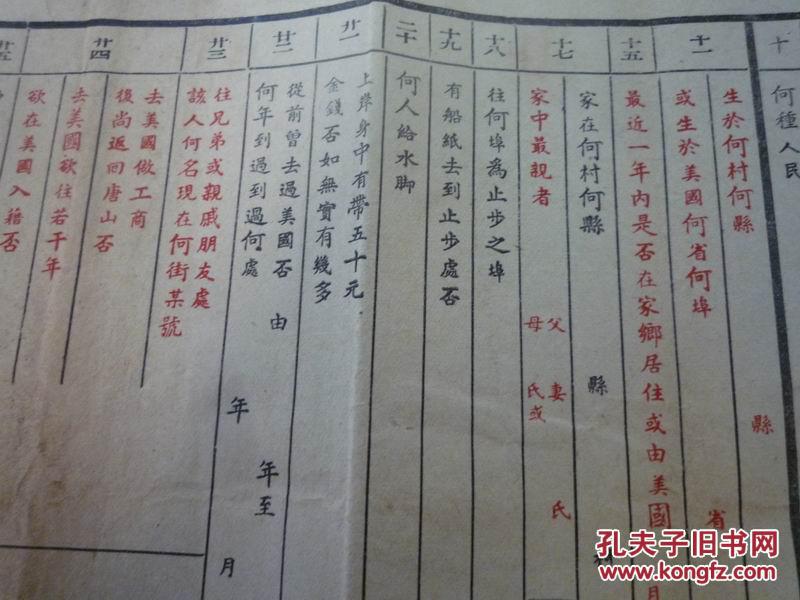 十
何種人民
十一
生於何村何縣 縣
或生於美國何省何埠 省
十五
最近一年內是否在家鄉居住或由美國 月
家在何村何縣 縣
十七
家中最親者 父 妻 氏
母 氏或
十八
往何埠為止步之埠
十九
有船紙去到止步處否
二十
何人給水脚
廿一
上岸身中有帶五十元
金錢否如無實有幾多
廿二
從前曾去過美國否 由 年至
何年到過到過何處 年 月
廿三
往兄弟或親戚朋友處
該人何名現在何街某號
廿四
去美國做工商
後尚返回唐山否
去美國欲往若干年
廿五
欲在美國入籍否
孔夫子旧书网
www.kongfz.com